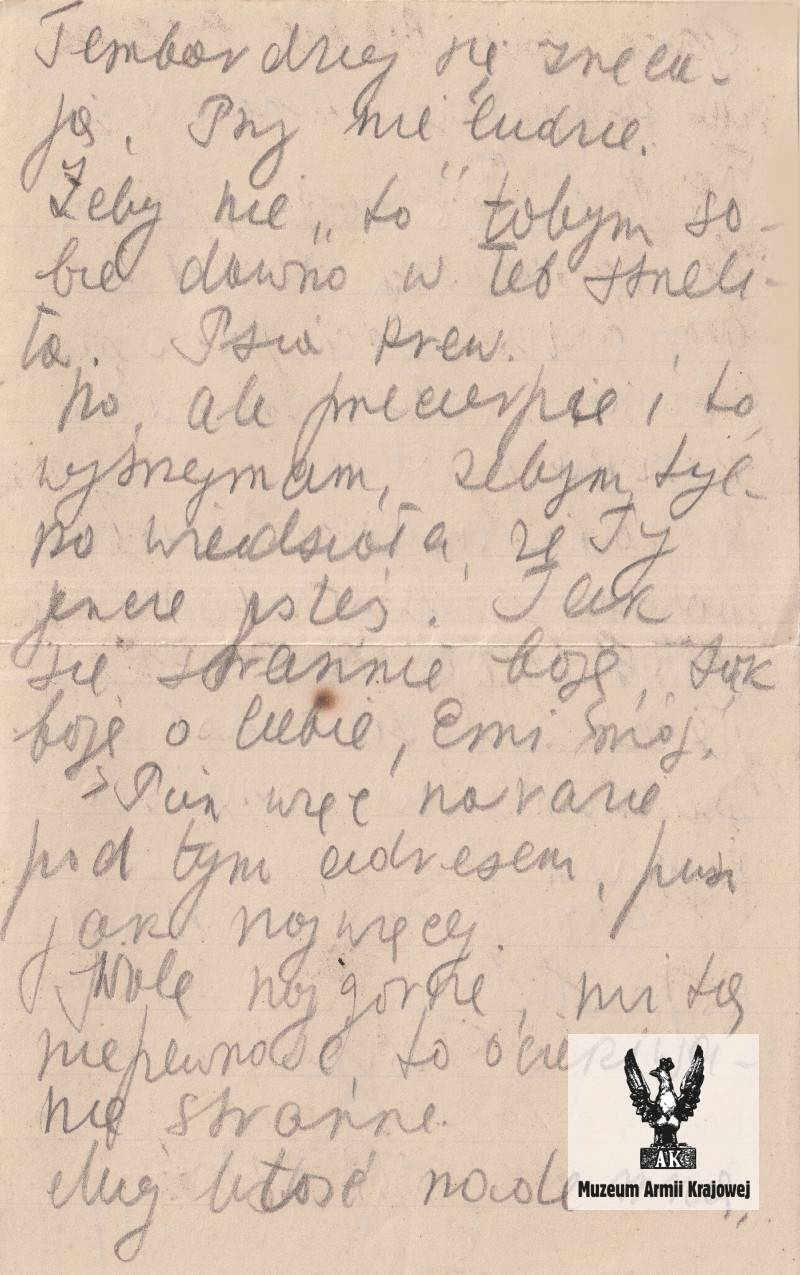 Tembardziej się znęca-
ją. Psy nie ludzie.
Żeby nie „to" tobym so-
bie dawno w łeb strzeli-
ła. Psia krew.
No, ale przecierpię i to,
wytrzymam, żebym tyl-
ko wiedziała, że Ty
jeszcze jesteś. Tak
się strasznie boję, tak
boję o Ciebie, Emi mój.
Pisz więc narazie
pod tym adresem, pisz
jak najwięcej.
Wolę najgorsze, niż tę
niepewność, to oczekiwa-
nie straszne.
Miej litość nade mną,
AK
Muzeum Armii Krajowej